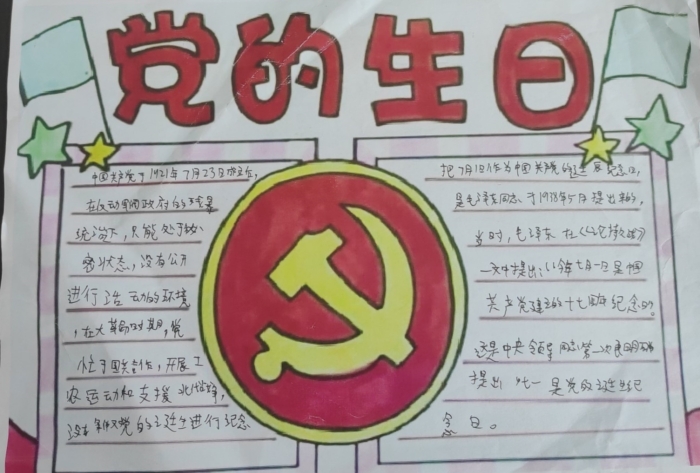 党的生日
中国共产党于1921年7月23日成立,
在反动军阀政府的
统治下,只能处于秘
密状态,没有公开
进行活动的环境
,在大革命时期,党
忙于国共合作,开展工
农运动和支援北伐战争,
没有来得及党的诞生进行纪念
把7月1日作为中国共产党的诞生纪念日,
是毛泽东同志于1938年5月提出来的,
当时,毛泽东在《论持久战》
一文中提出:"今年七月一日是中国
共产党建立的十七周年纪念日。
这是中央领导同志第一次明确
提出"七一"是党的诞生纪
念日。